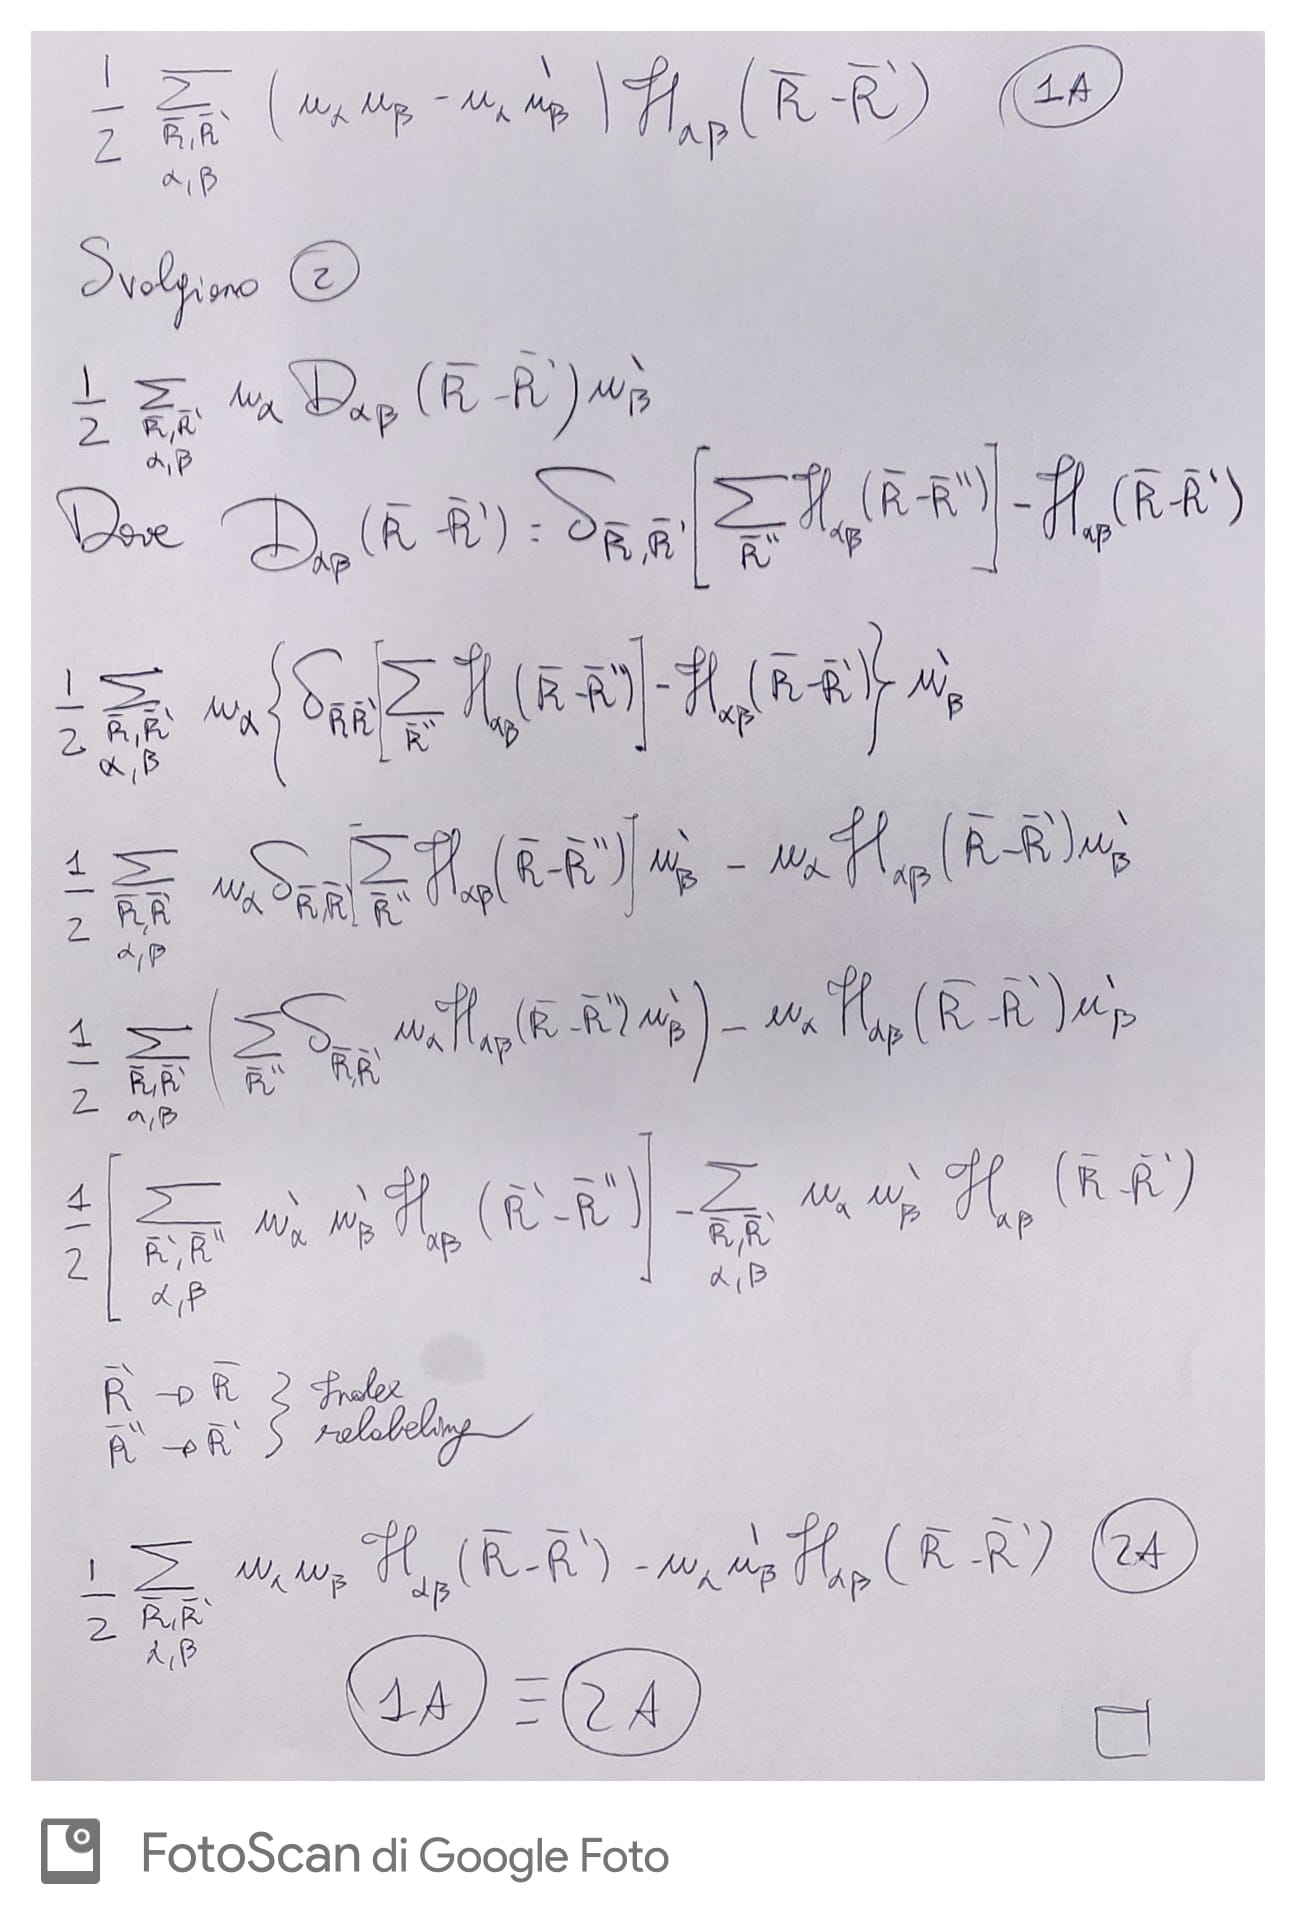 1/2 Σ_{R̄,R̄' α,β} (u_α u_β - u_α u'_β) ℋ_{αβ} (R̄ - R̄') (1A)
Svolgiamo (2)
1/2 Σ_{R̄,R̄' α,β} u_α D_{αβ} (R̄ - R̄') u'_β
Dove D_{αβ} (R̄ - R̄') = δ_{R̄,R̄'} [Σ_{R̄''} ℋ_{αβ} (R̄ - R̄'')] - ℋ_{αβ} (R̄ - R̄')
1/2 Σ_{R̄,R̄' α,β} u_α {δ_{R̄R̄'} [Σ_{R̄''} ℋ_{αβ} (R̄ - R̄'')] - ℋ_{αβ} (R̄ - R̄')} u'_β
1/2 Σ_{R̄,R̄' α,β} u_α δ_{R̄,R̄'} [Σ_{R̄''} ℋ_{αβ} (R̄ - R̄'')] u'_β - u_α ℋ_{αβ} (R̄ - R̄') u'_β
1/2 Σ_{R̄,R̄' α,β} (Σ_{R̄''} δ_{R̄,R̄'} u_α ℋ_{αβ} (R̄ - R̄'') u'_β) - u_α ℋ_{αβ} (R̄ - R̄') u'_β
1/2 [Σ_{R̄',R̄'' α,β} u'_α u'_β ℋ_{αβ} (R̄' - R̄'')] - Σ_{R̄,R̄' α,β} u_α u'_β ℋ_{αβ} (R̄ - R̄')
R̄' → R̄ } Index
R̄'' → R̄' } relabeling
1/2 Σ_{R̄,R̄' α,β} u_α u_β ℋ_{αβ} (R̄ - R̄') - u_α u'_β ℋ_{αβ} (R̄ - R̄') (2A)
(1A) ≡ (2A) □
FotoScan di Google Foto